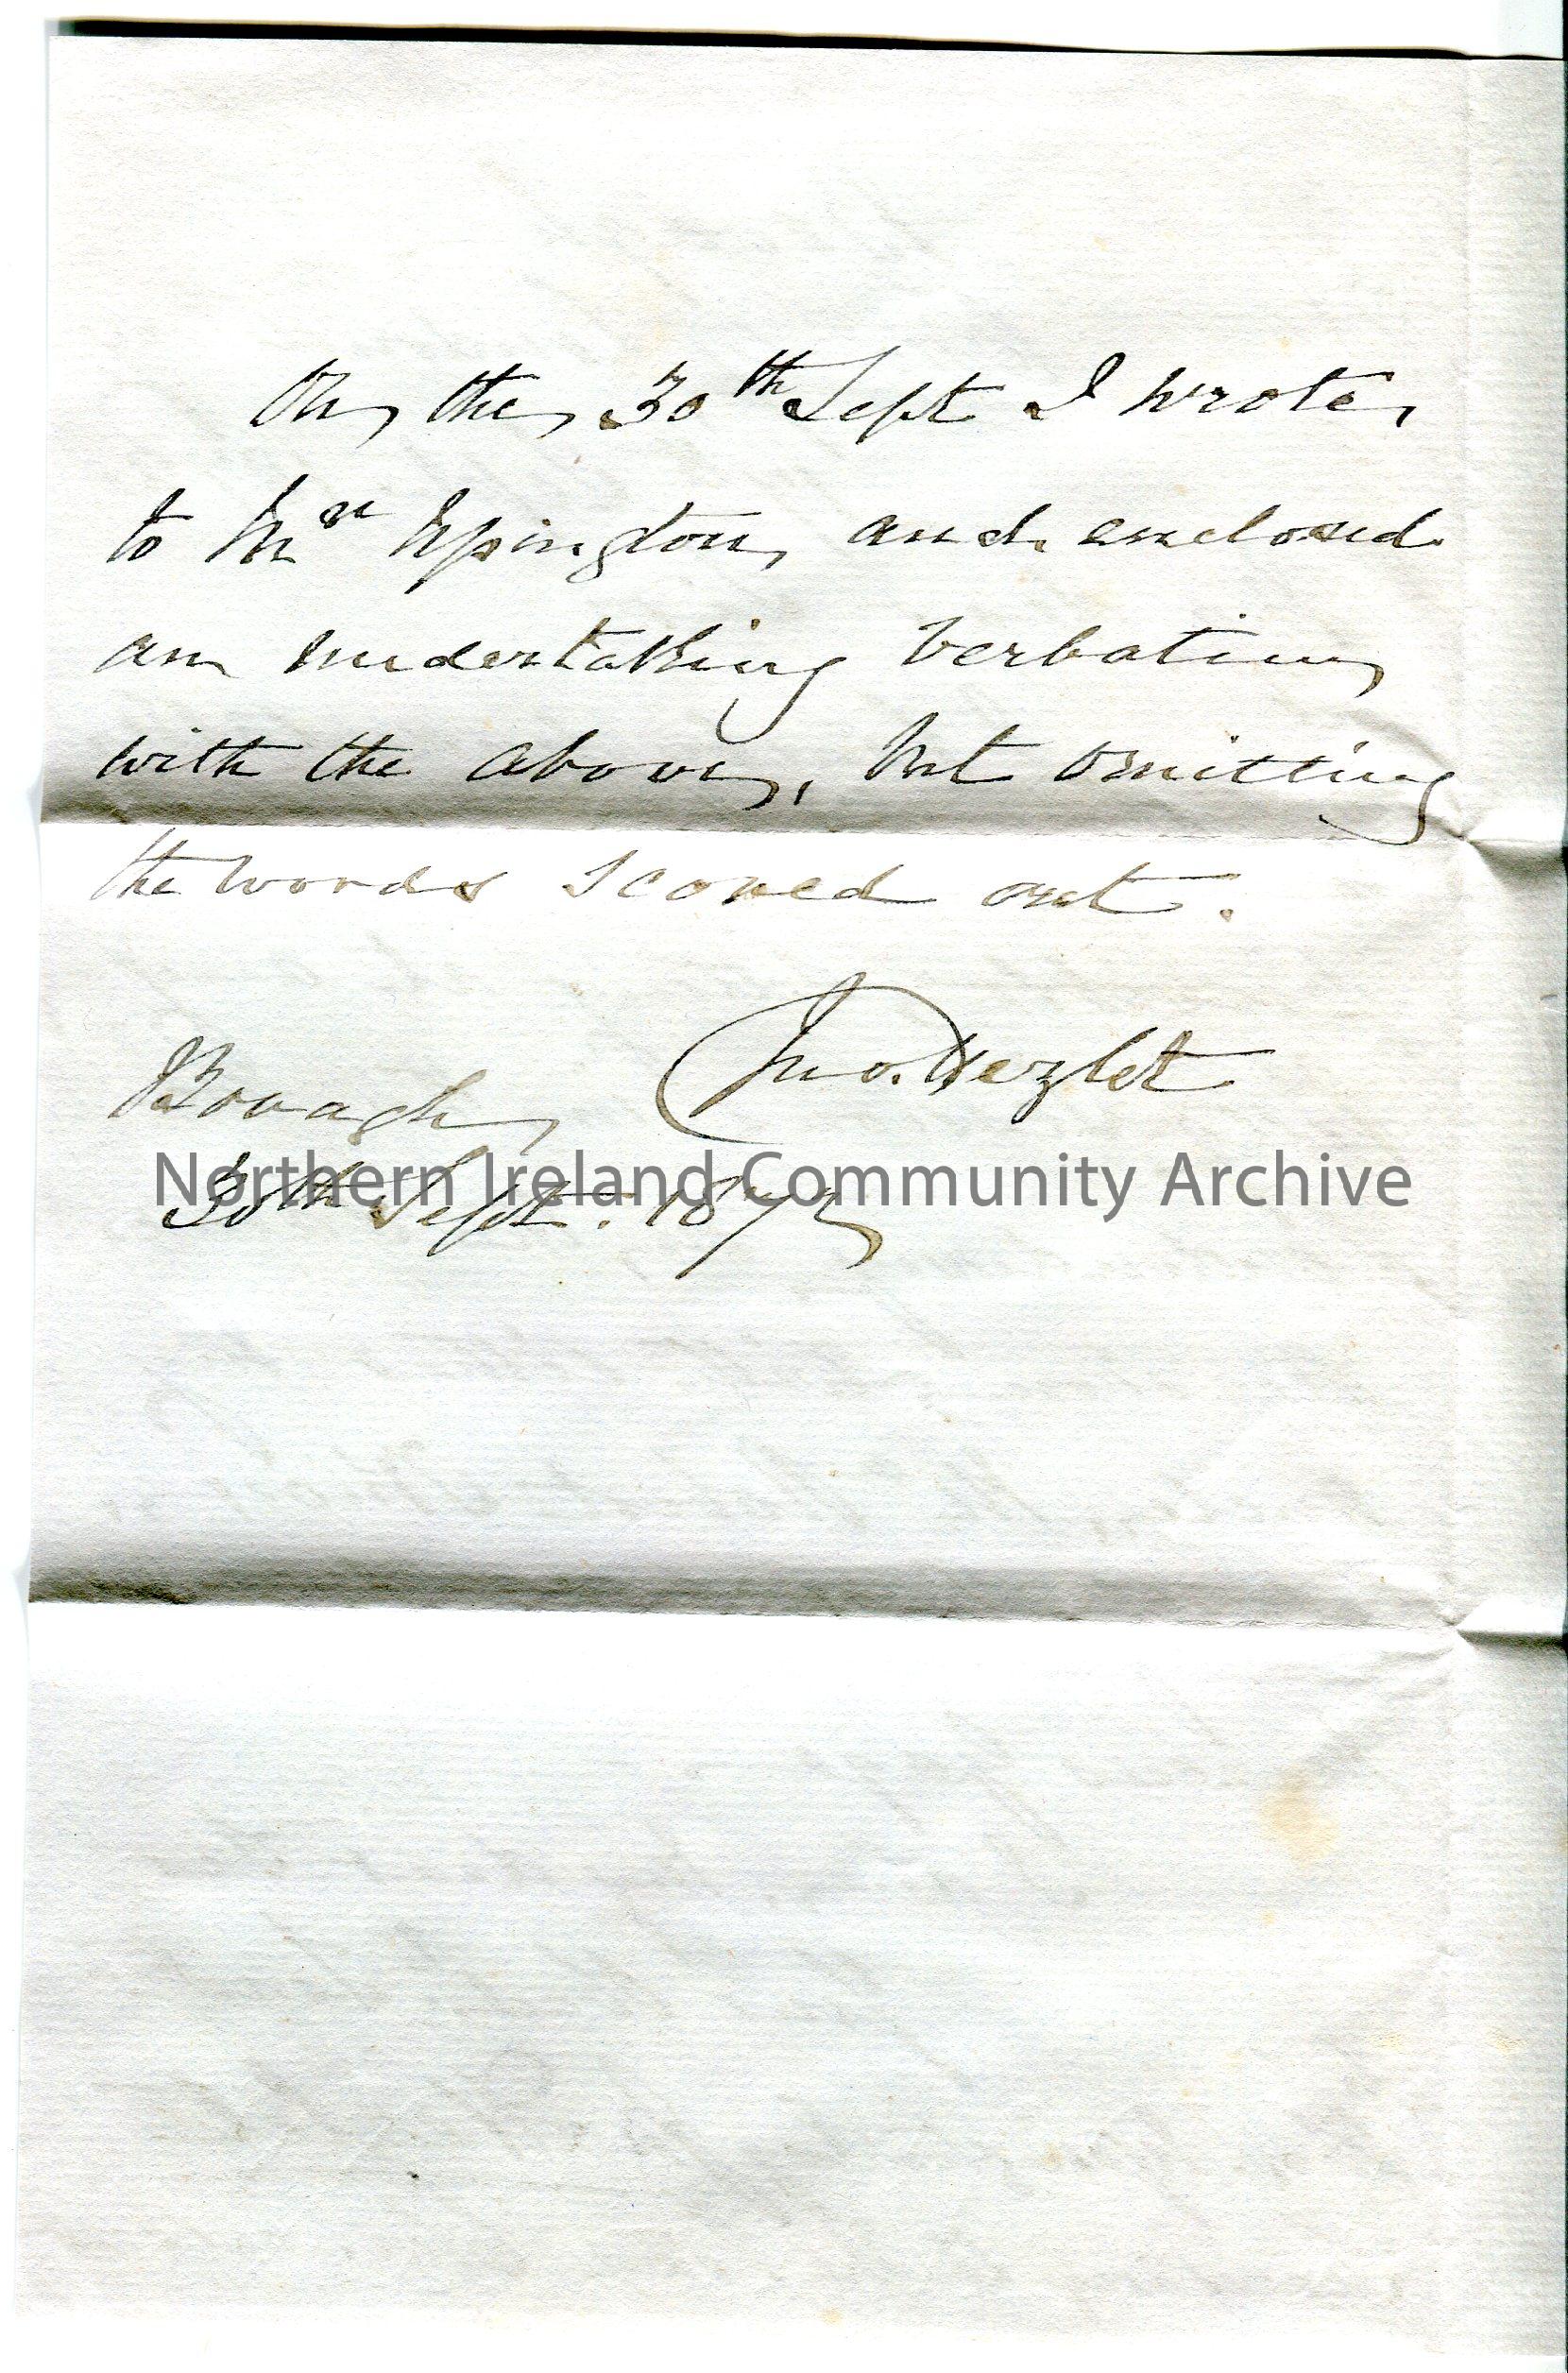 On the 30th Sept I wrote
to Mr Epington, and enclosed
an undertaking verbatim
with the above, but omitting
the words scored out.
Jno. Hezlet
Bovagh
30th Sept. 1872
Northern Ireland Community Archive